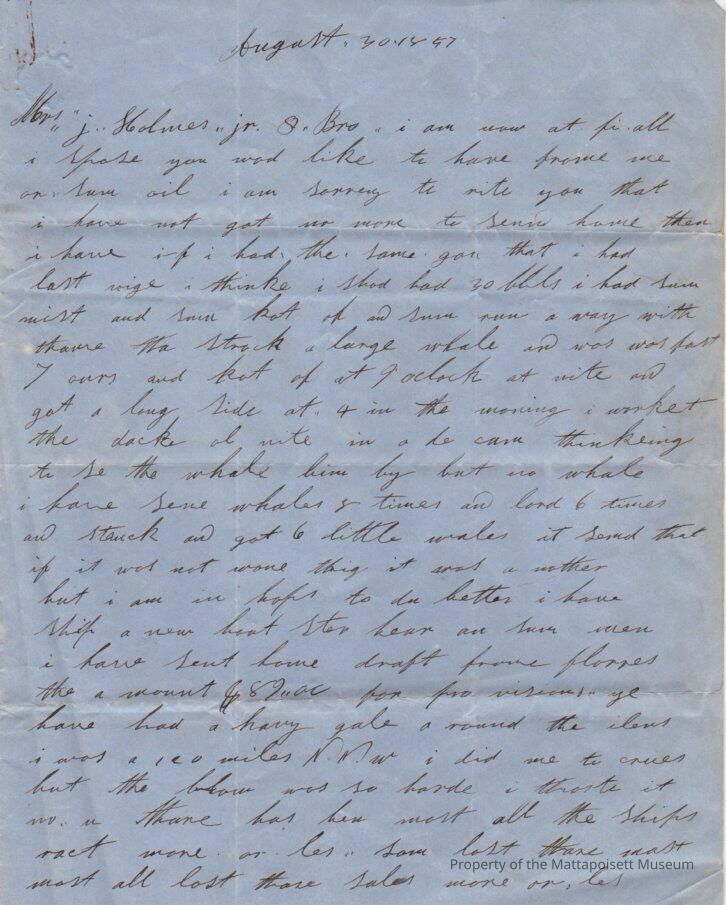 August. 30. 1857
Mrs" j.. Holmes,, jr. & Bro,, i am now at fi.all
i spose you wod like to have frome me
or sum oil i am sorrey to rite you that
i have not got no more to send home then
i have if i had the same gon that i had
last vige i thinke i shod had 30 bbls i had sum
mist and sum kot of ad sum run a way with
thare tha strack a large whale ad was was fast
7 ours and kot of at 9 oclock at nite ad
got a long side at 4 in the morning i worket
the dacke ol nite in a de cam thinkeing
to se the whale bim by but no whale
i have sene whales 8 times ad lord 6 times
ad struck ad got 6 little wales it semd that
if it was not wone thig it was a nother
but i am in hops to du better i have
ship a new boat ster hear an sum men
i have sent home draft frome florres
the a mount $89,,00 for pro visions,, ye
have had a havy gale a round the ilens
i was a 100 miles N.N.W i did me to crues
but the blow was so harde i
no. u thare has ben most all the ships
ract more or les,, som lost thare mast
most all lost thare sales more or, les
Property of the Mattapoisett Museum